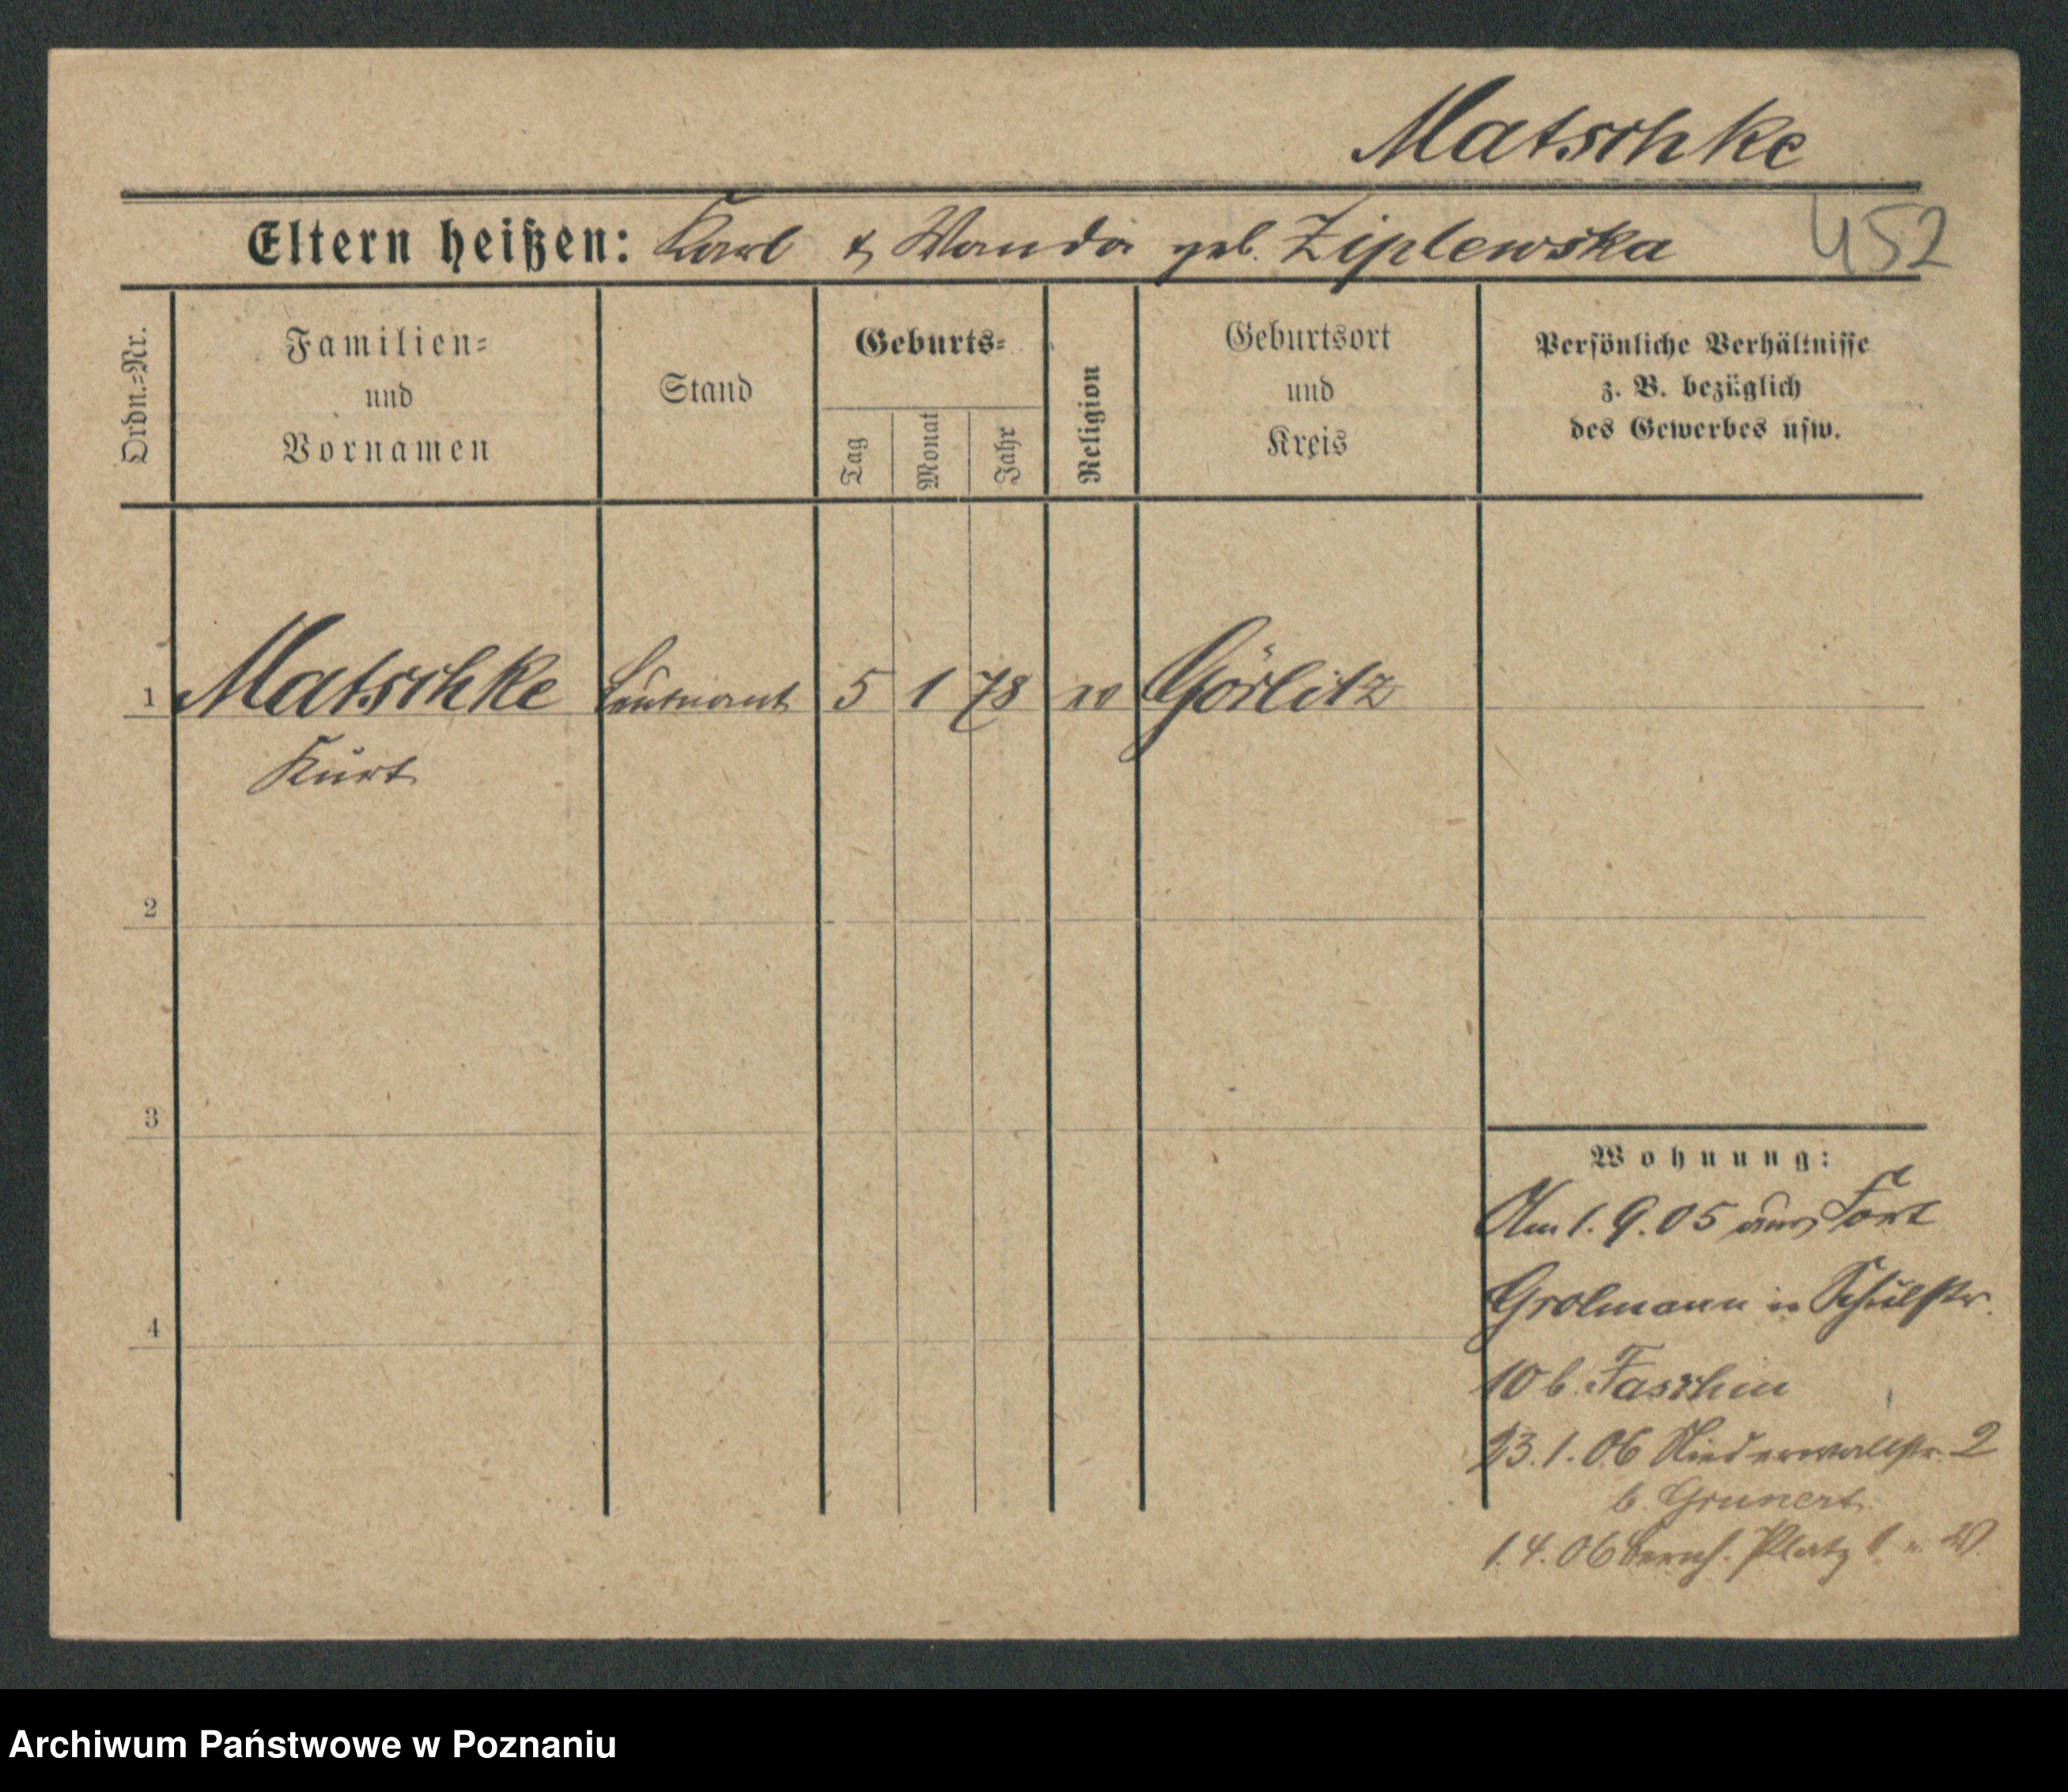 Matschke
Eltern heißen: Karl & Wanda geb. Ziplewska
452
Ordn.=Nr.
Familien=
und
Vornamen
Stand
Geburts=
Tag
Monat
Jahr
Religion
Geburtsort
und
Kreis
Persönliche Verhältnisse
z. B. bezüglich
des Gewerbes usw.
1 Matschke Leutnant 5 1 78 Görlitz
Kurt
2
3
4
Wohnung:
Am 1. 9. 05 aus Fort
Grolmann Schulstr.
10 b. Faschin
23. 1. 06 Niederwallstr. 2
b. Grunert
1. 4. 06 Platz
Archiwum Państwowe w Poznaniu